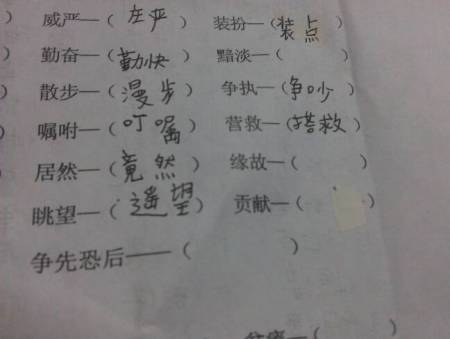 ) 威严—(庄严) 装扮—(装点)
) 勤奋—(勤快) 黯淡—( )
) 散步—(漫步) 争执—(争吵)
) 嘱咐—(叮嘱) 营救—(搭救)
居然—(竟然) 缘故—( )
眺望—(遥望) 贡献—( )
争先恐后——( )